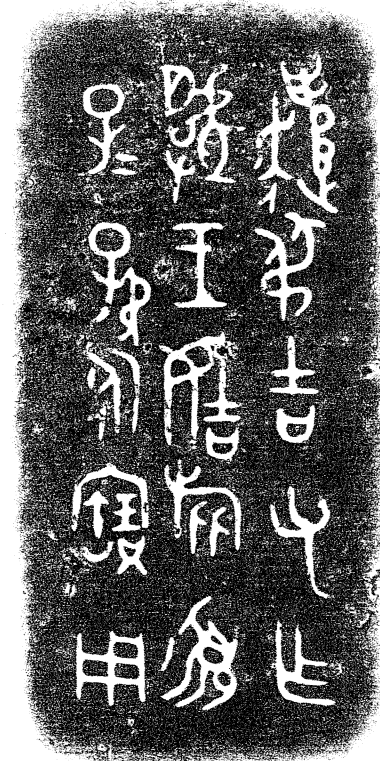 遣叔吉父乍
虢王姞旅盨
子=孫=永寶用